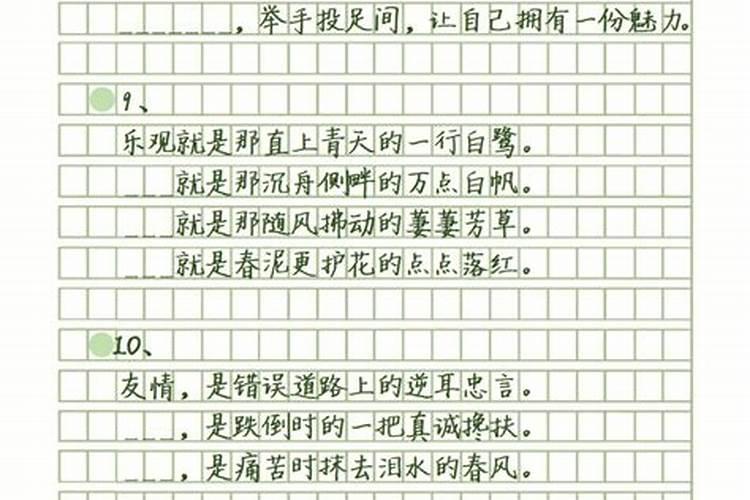 _______，举手投足间，让自己拥有一份魅力。
9、
乐观就是那直上青天的一行白鹭。
___就是那沉舟侧畔的万点白帆。
___就是那随风拂动的萋萋芳草。
___就是春泥更护花的点点落红。
10、
友情，是错误道路上的逆耳忠言。
___，是跌倒时的一把真诚搀扶。
___，是痛苦时抹去泪水的春风。